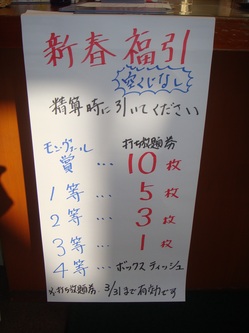 新春福引
空くじなし
精算時に引いてください
打ち放題券
モンヴェール賞 … 10枚
1等 … 5枚
2等 … 3枚
3等 … 1枚
4等 … ボックスティッシュ
※打ち放題券 3/31まで有効です